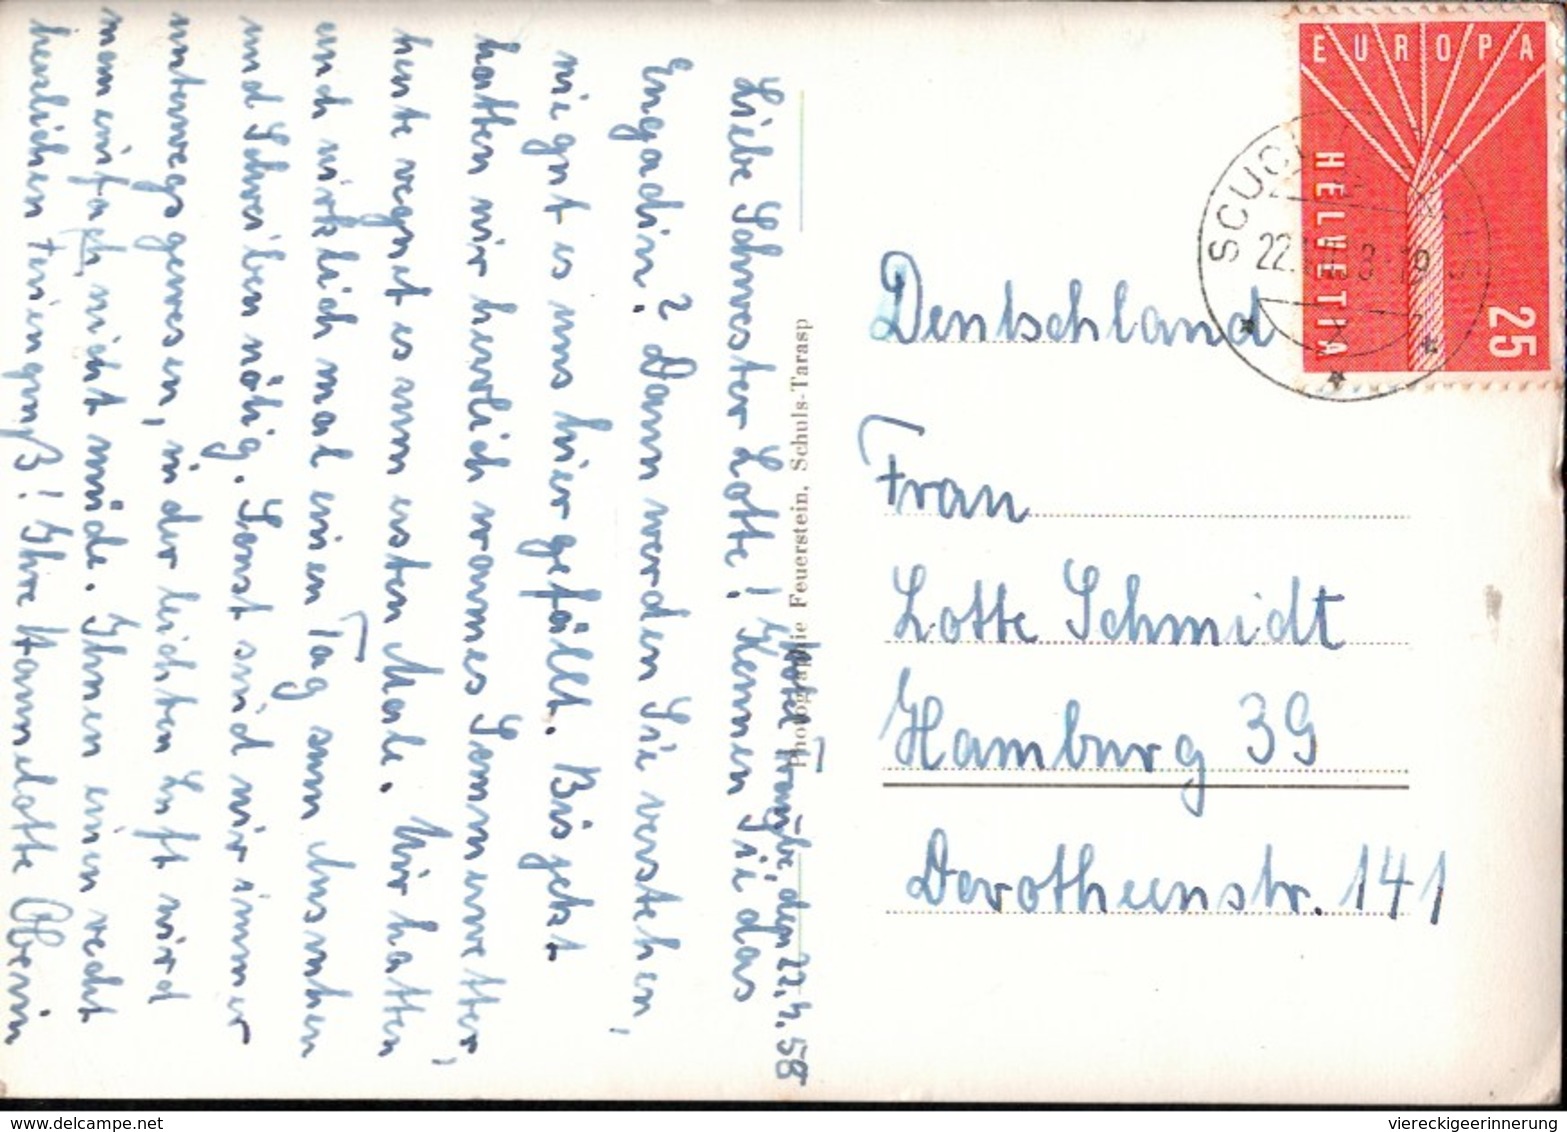 Hotel Tranübe, den 22.7.58
Liebe Schwester Lotte! Kennen Sie das
Engadin? Dann werden Sie verstehen,
wie gut es uns hier gefällt. Bis jetzt
hatten wir herrlich warmes Sommerwetter,
heute regnet es zum ersten Male. Wir hatten
auch wirklich mal einen Tag zum Ausruhen
und Schreiben nötig. Sonst sind wir immer
unterwegs gewesen, in der leichten Luft wird
man einfach nicht müde. Ihnen einen recht
herzlichen Feriengruß! Ihre Hannelotte
Photographie Feuerstein, Schuls-Tarasp
EUROPA
HELVETIA
25
SCUOL
22.
Deutschland
Frau
Lotte Schmidt
Hamburg 39
Dorotheenstr. 141
viereckigeerinnerung